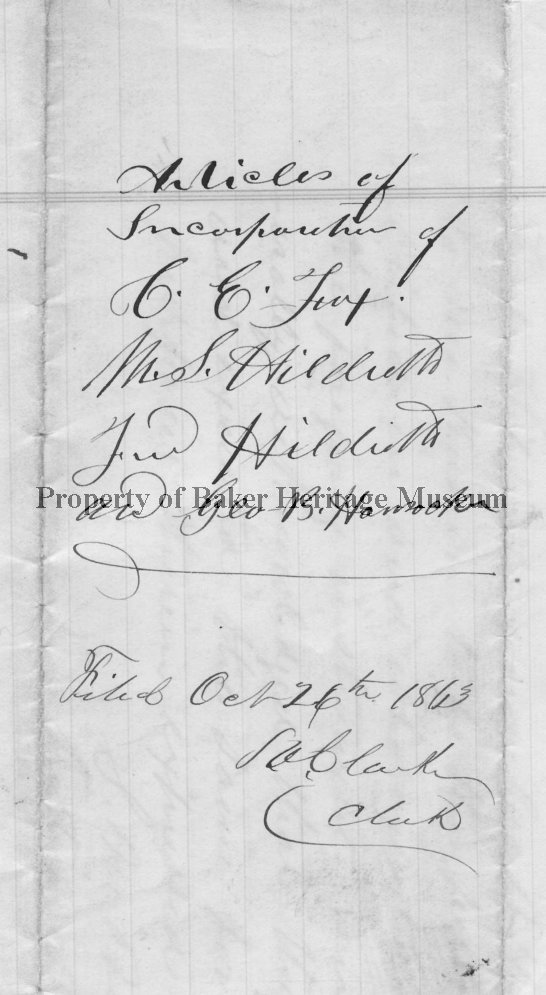 Articles of
Incorporation of
C. E. Fox.
M. S. Hildreth
Fred Hildreth
and Geo B.
Property of Baker Heritage Museum
Filed Oct 26th 1863
Clarke
Clerk